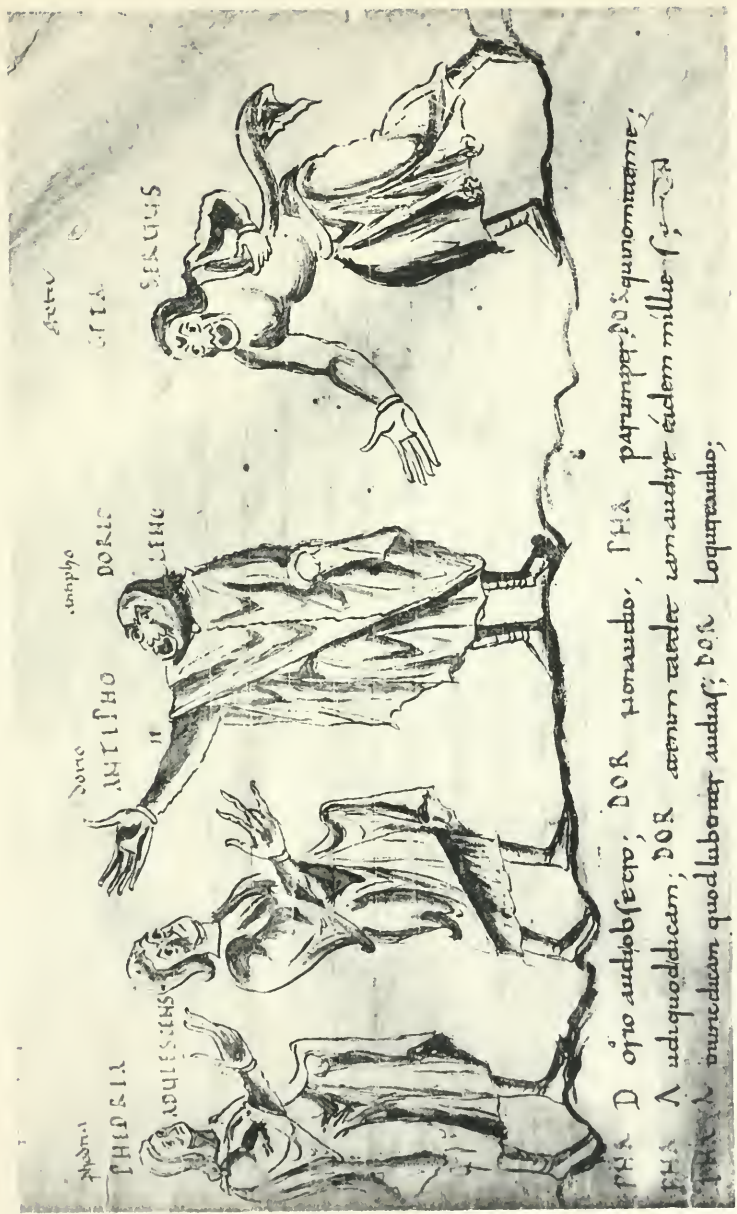 phedria dorio antipho
PHEDRIA ANTIPHO DORIO GETA
ADULESCENS II LENO SERUUS
PHA D orio audiobsecro; DOR nonaudio; PHA parumper; DOR quinomitteme;
PHA A udiquoddicam; DOR atenim taedet iamaudire eadem millie s;
PHA nuncdicam quodlubenter audias; DOR Loquereaudio;